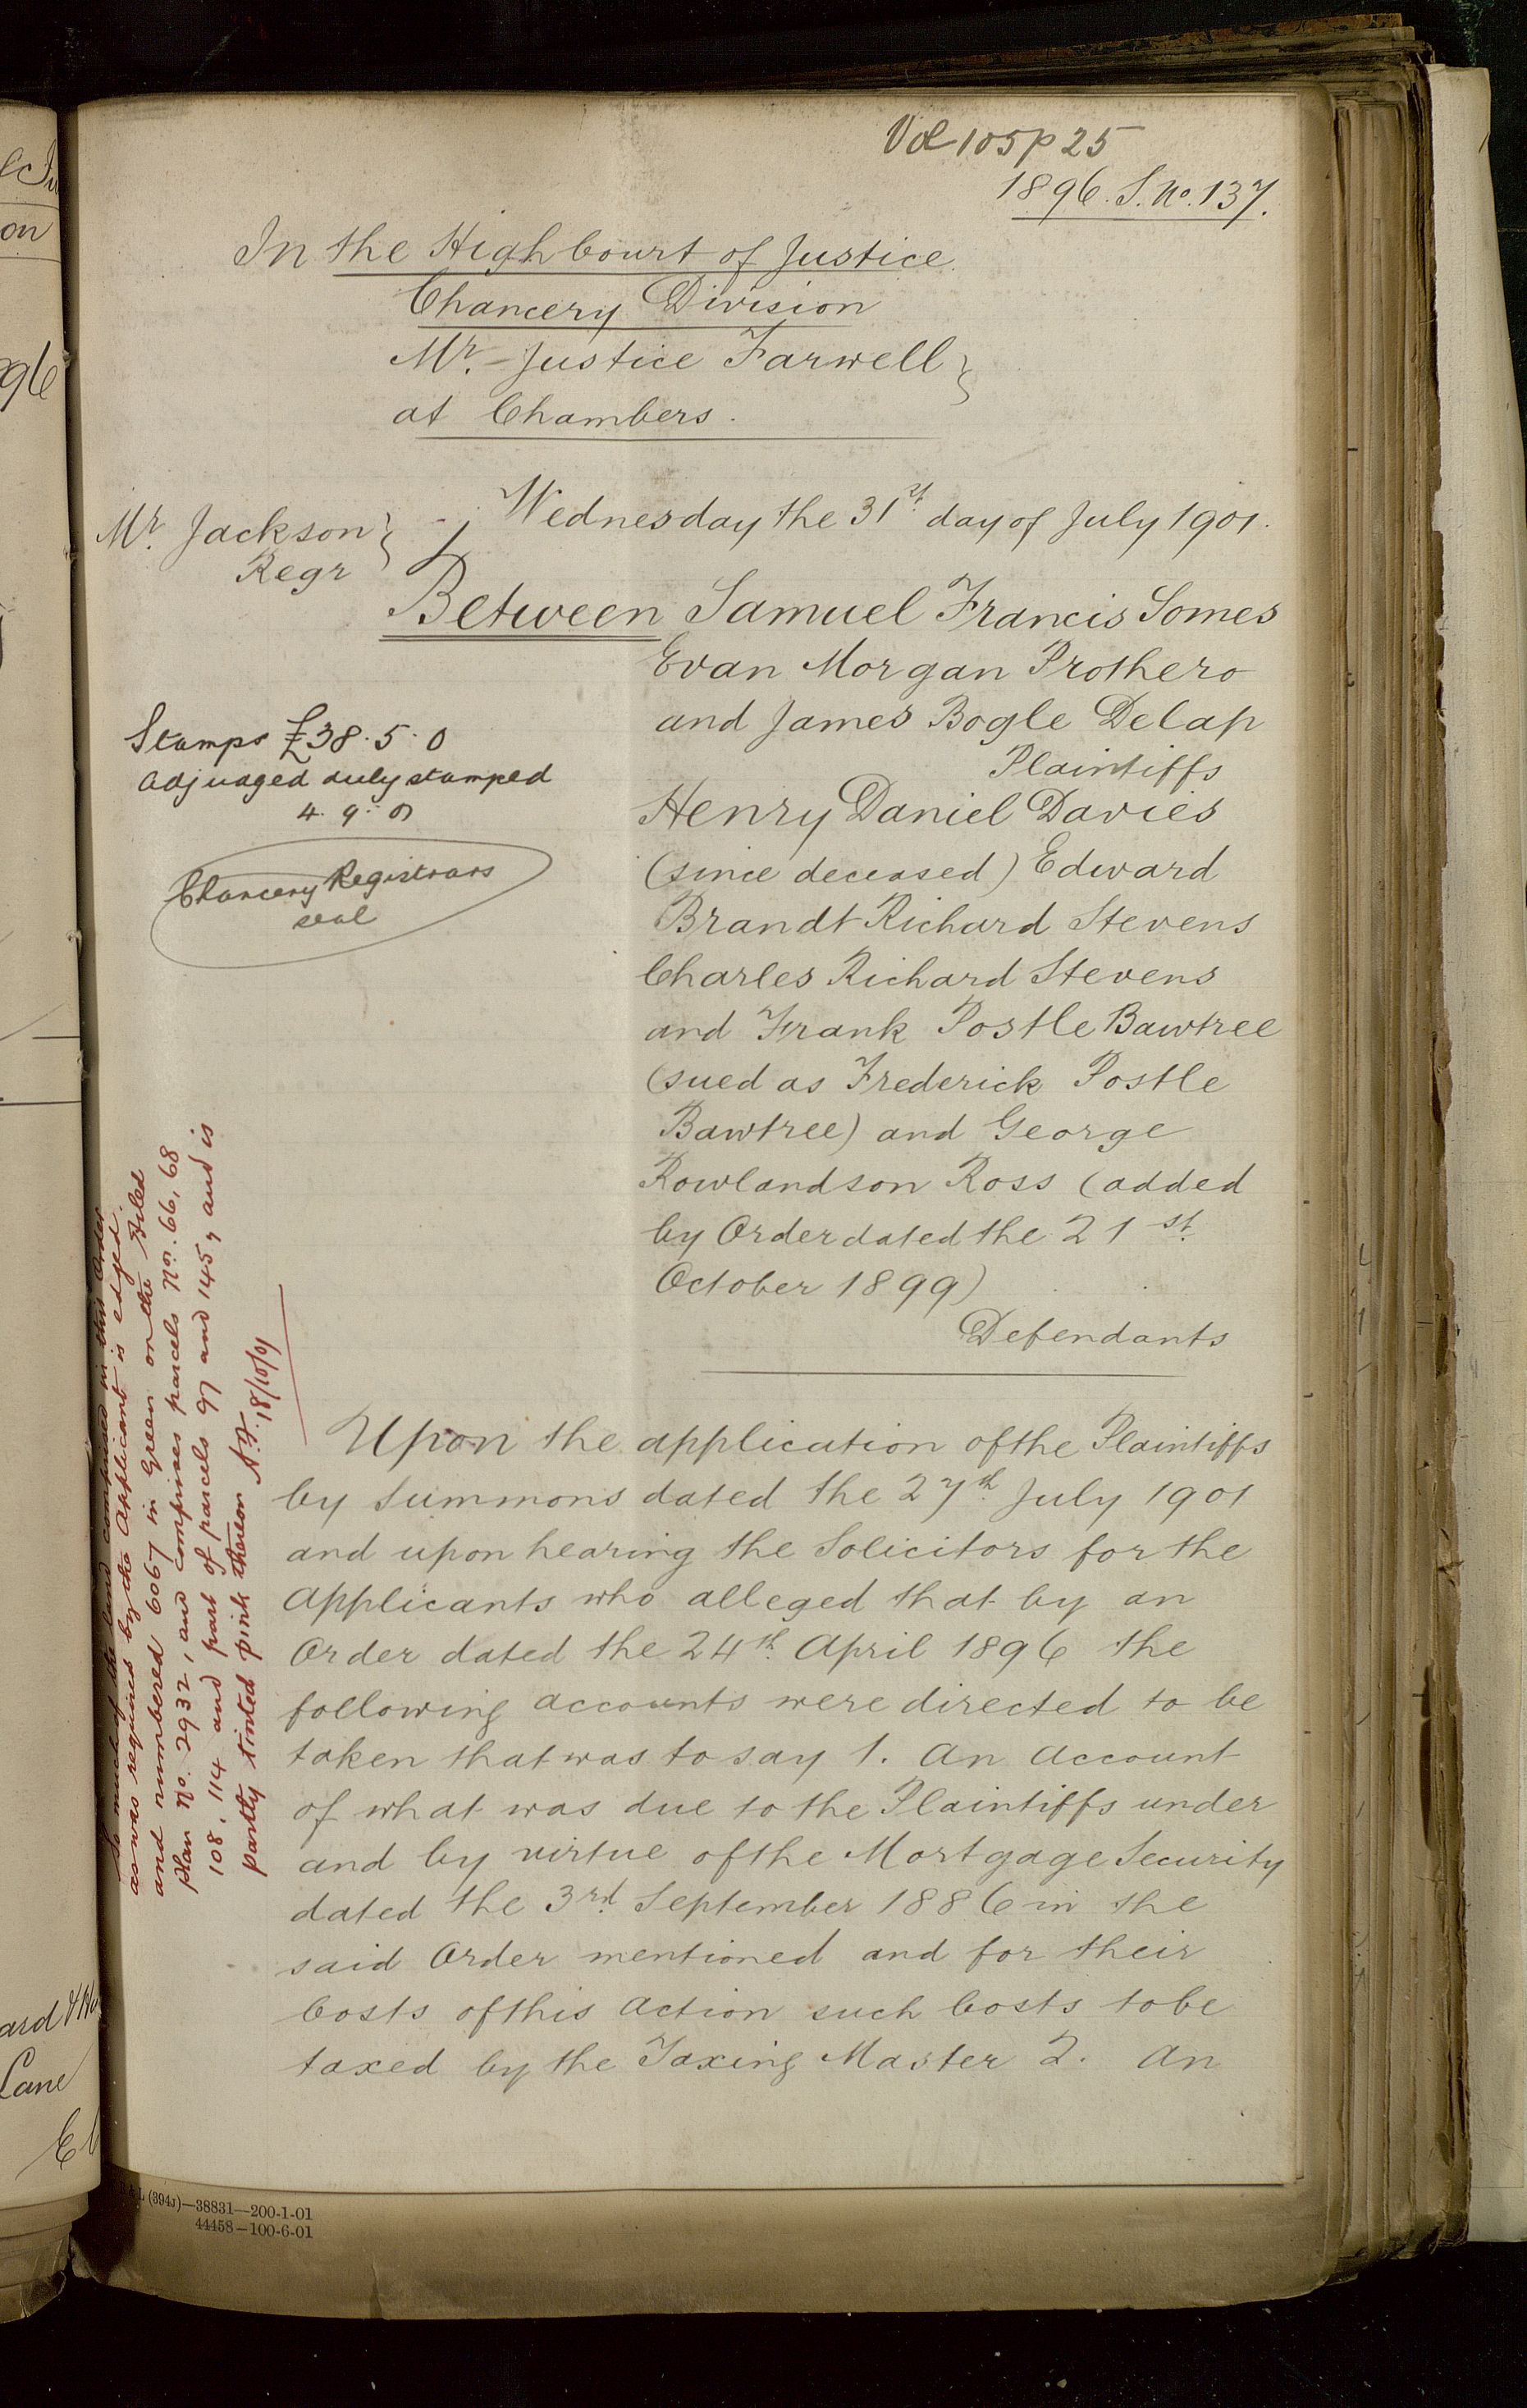 Vol 105 p 25
1896. S. No. 137.
In the High Court of Justice
Chancery Division
Mr. Justice Farwell
at Chambers.
Wednesday the 31st day of July 1901.
Mr. Jackson
Regr
Between Samuel Francis Somes
Evan Morgan Prothero
and James Bogle Delap
Plaintiffs
Henry Daniel Davies
(since deceased) Edward
Brandt Richard Stevens
Charles Richard Stevens
and Frank Postle Bawtree
(sued as Frederick Postle
Bawtree) and George
Rowlandson Ross (added
by Order dated the 21st
October 1899)
Defendants
Stamps £38.5.0
Adjudged duly stamped
4.9.01
Chancery Registrars
seal
So much of the land comprised in this Order
as was required by the Applicant is edged
and numbered 6067 in Green on the Filed
plan No. 2932, and comprises parcels Nos. 66, 68
108, 114 and part of parcels 97 and 145, and is
partly tinted pink thereon A.F. 18/10/01
Upon the application of the Plaintiffs
by Summons dated the 27th July 1901
and upon hearing the Solicitors for the
Applicants who alleged that by an
Order dated the 24th April 1896 the
following accounts were directed to be
taken that was to say 1. An Account
of what was due to the Plaintiffs under
and by virtue of the Mortgage Security
dated the 3rd September 1886 in the
said Order mentioned and for their
Costs of this Action such Costs to be
taxed by the Taxing Master 2. An
L (394J)—38831—200-1-01
44458—100-6-01
on
96
Lane